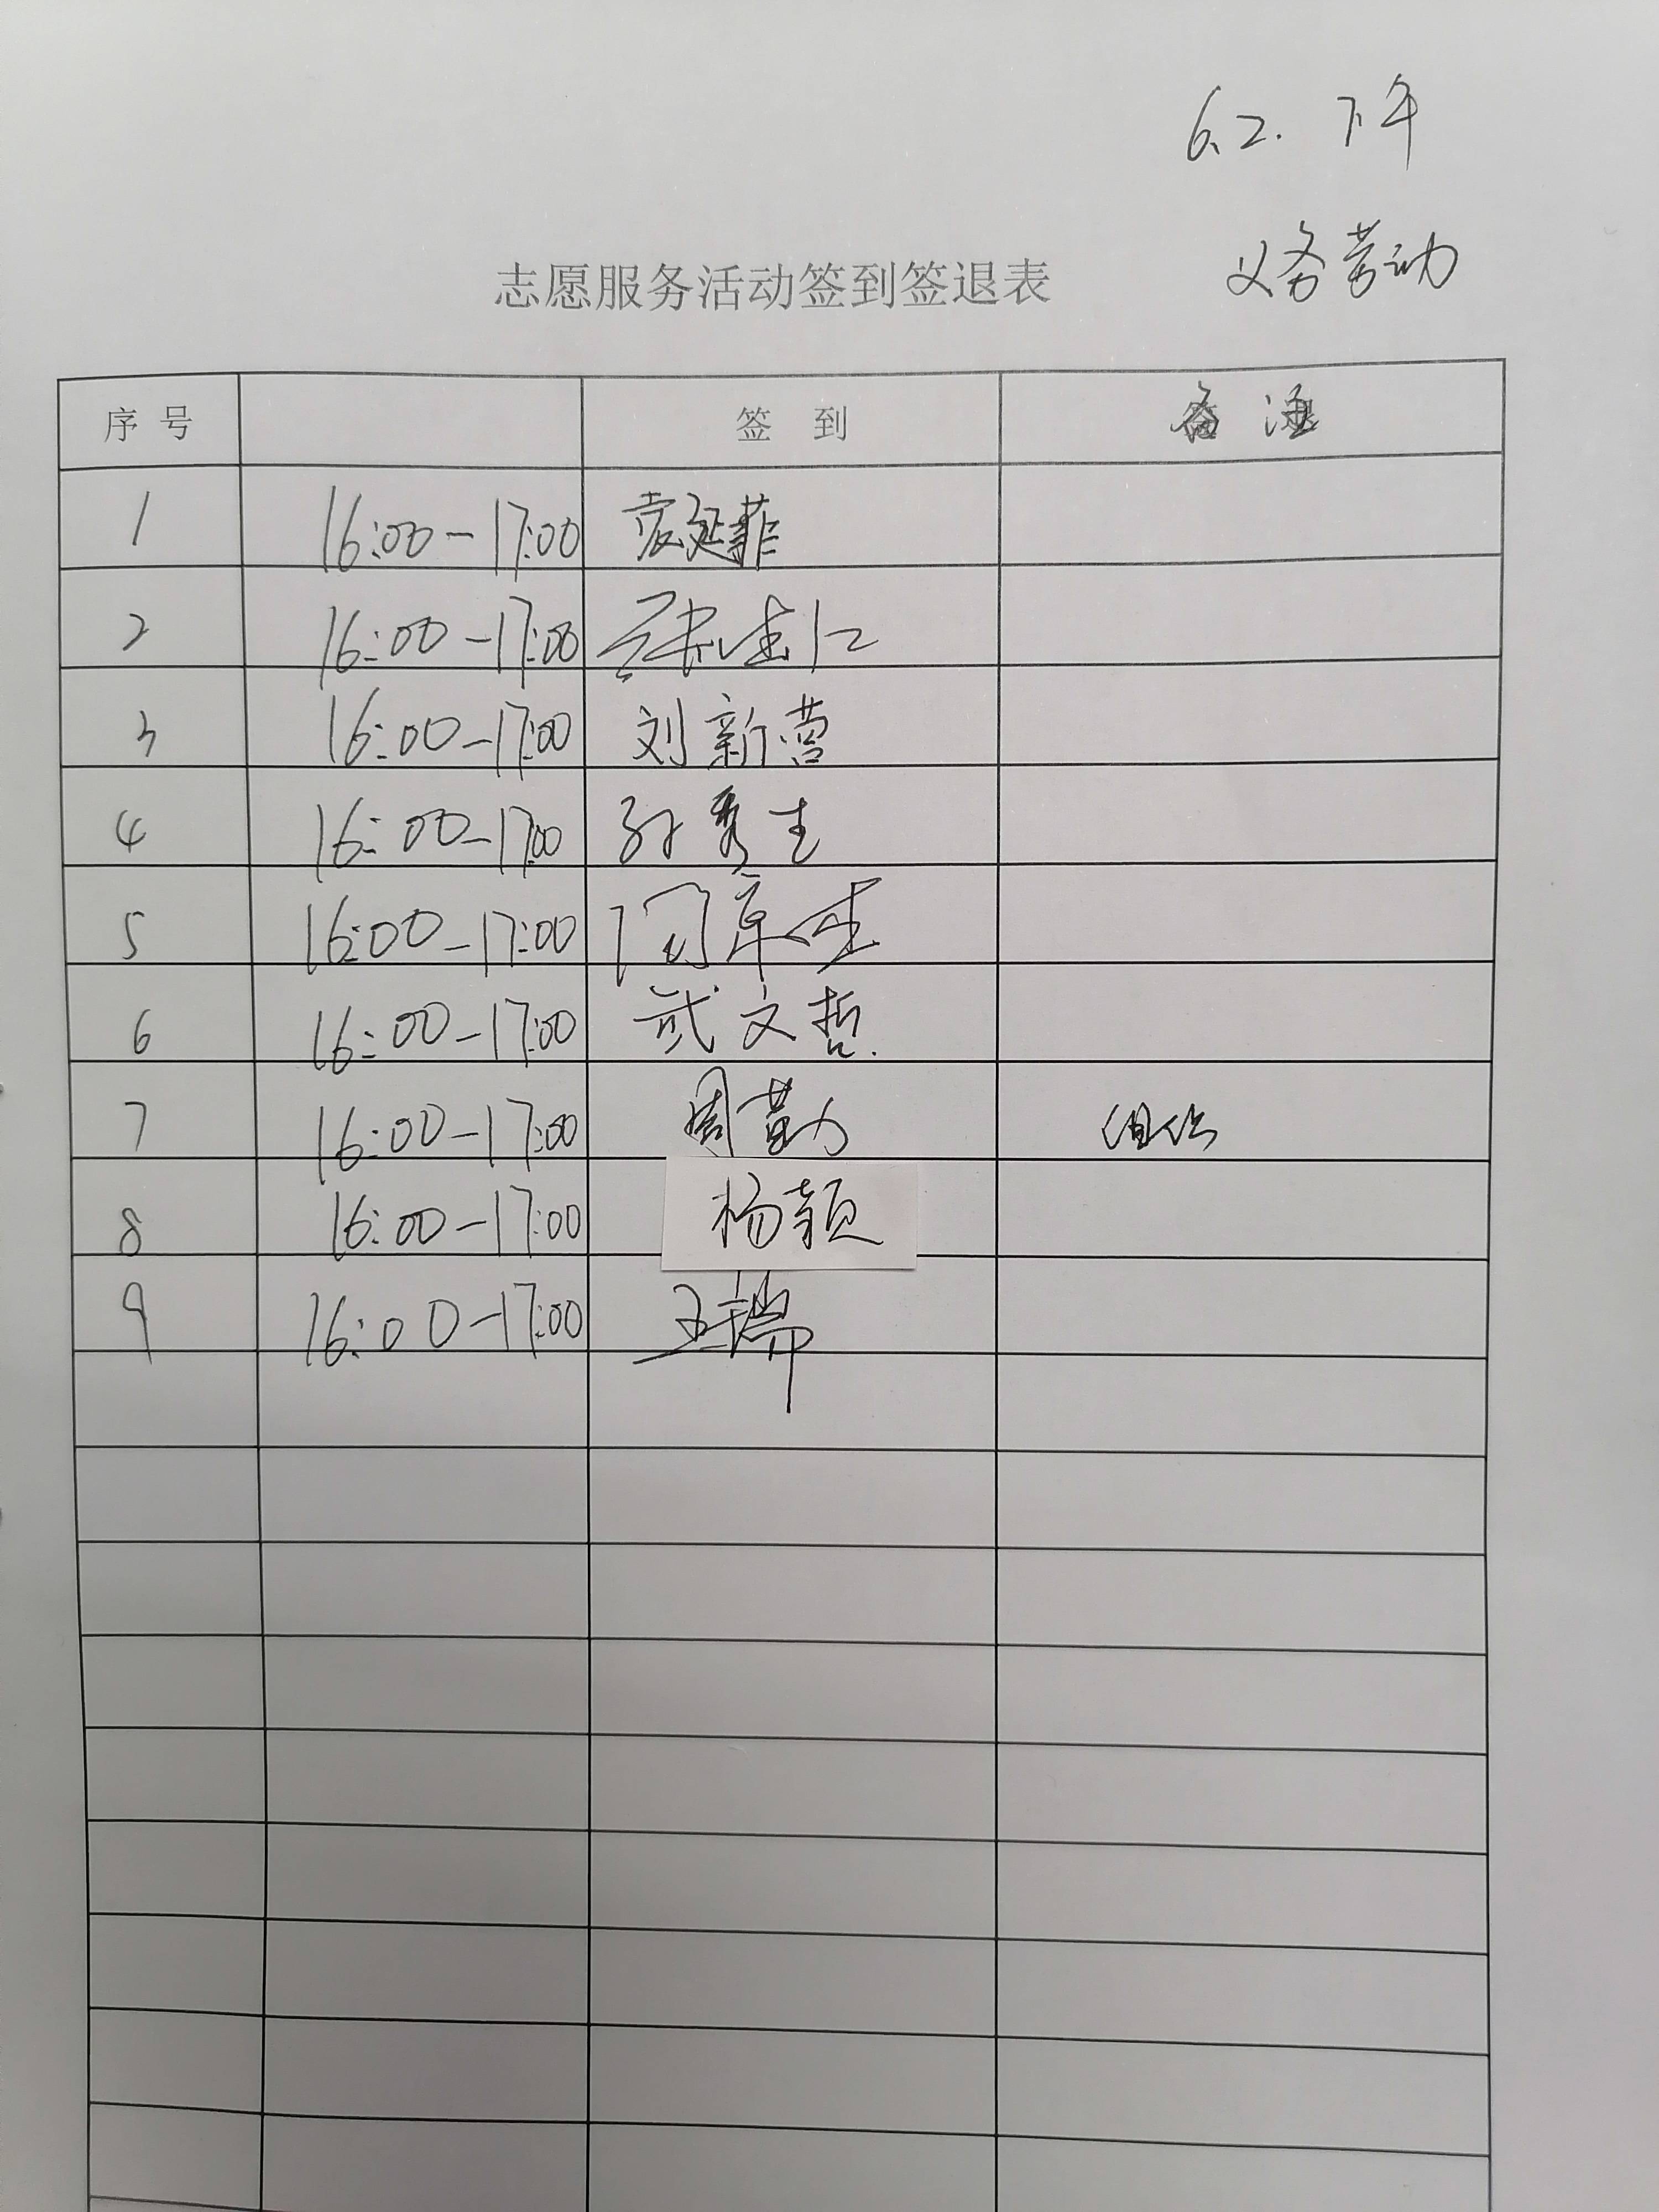 6.2. 下午
义务劳动
志愿服务活动签到签退表
序号 签到 备注
1 16:00-17:00 袁延菲
2 16:00-17:00
3 16:00-17:00 刘新营
4 16:00-17:00 孙秀生
5 16:00-17:00
6 16:00-17:00 武文哲
7 16:00-17:00 周勤 组织
8 16:00-17:00 杨颖
9 16:00-17:00 王瑞